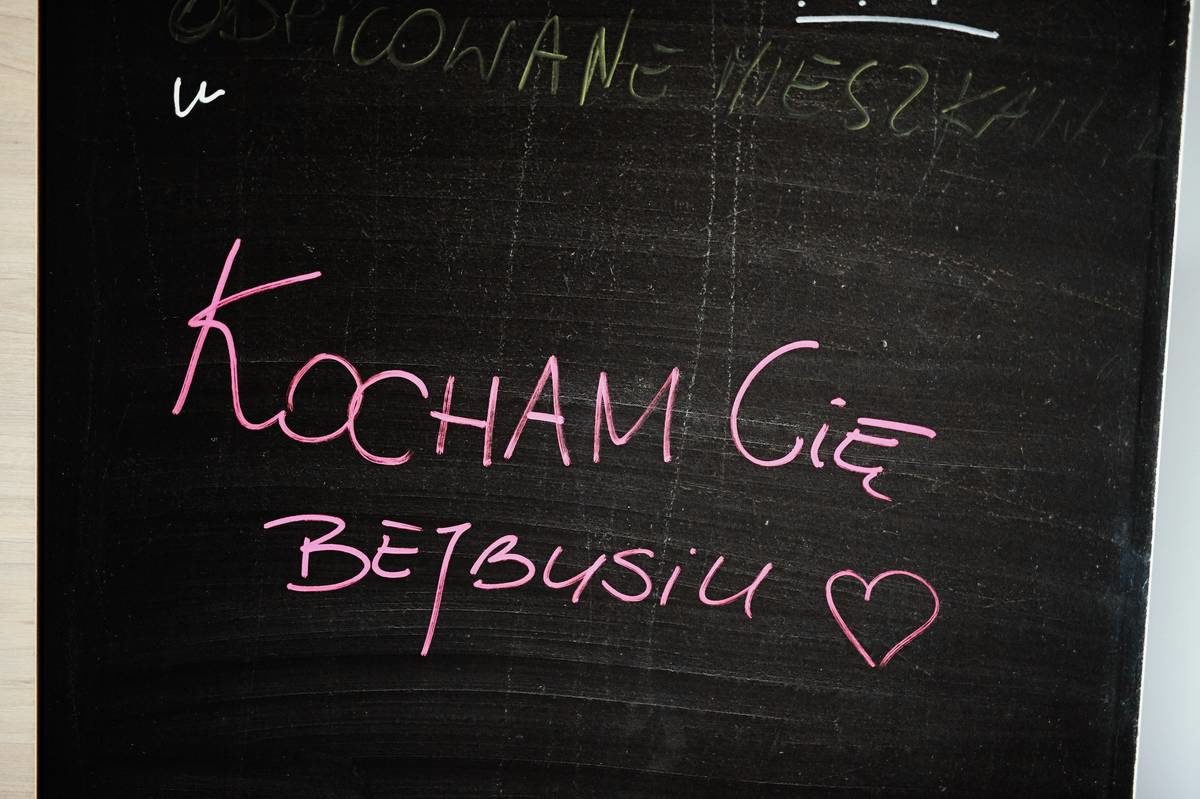 ODPICOWANE MIESZKAN
KOCHAM CIĘ
BEJBUSIU ♡